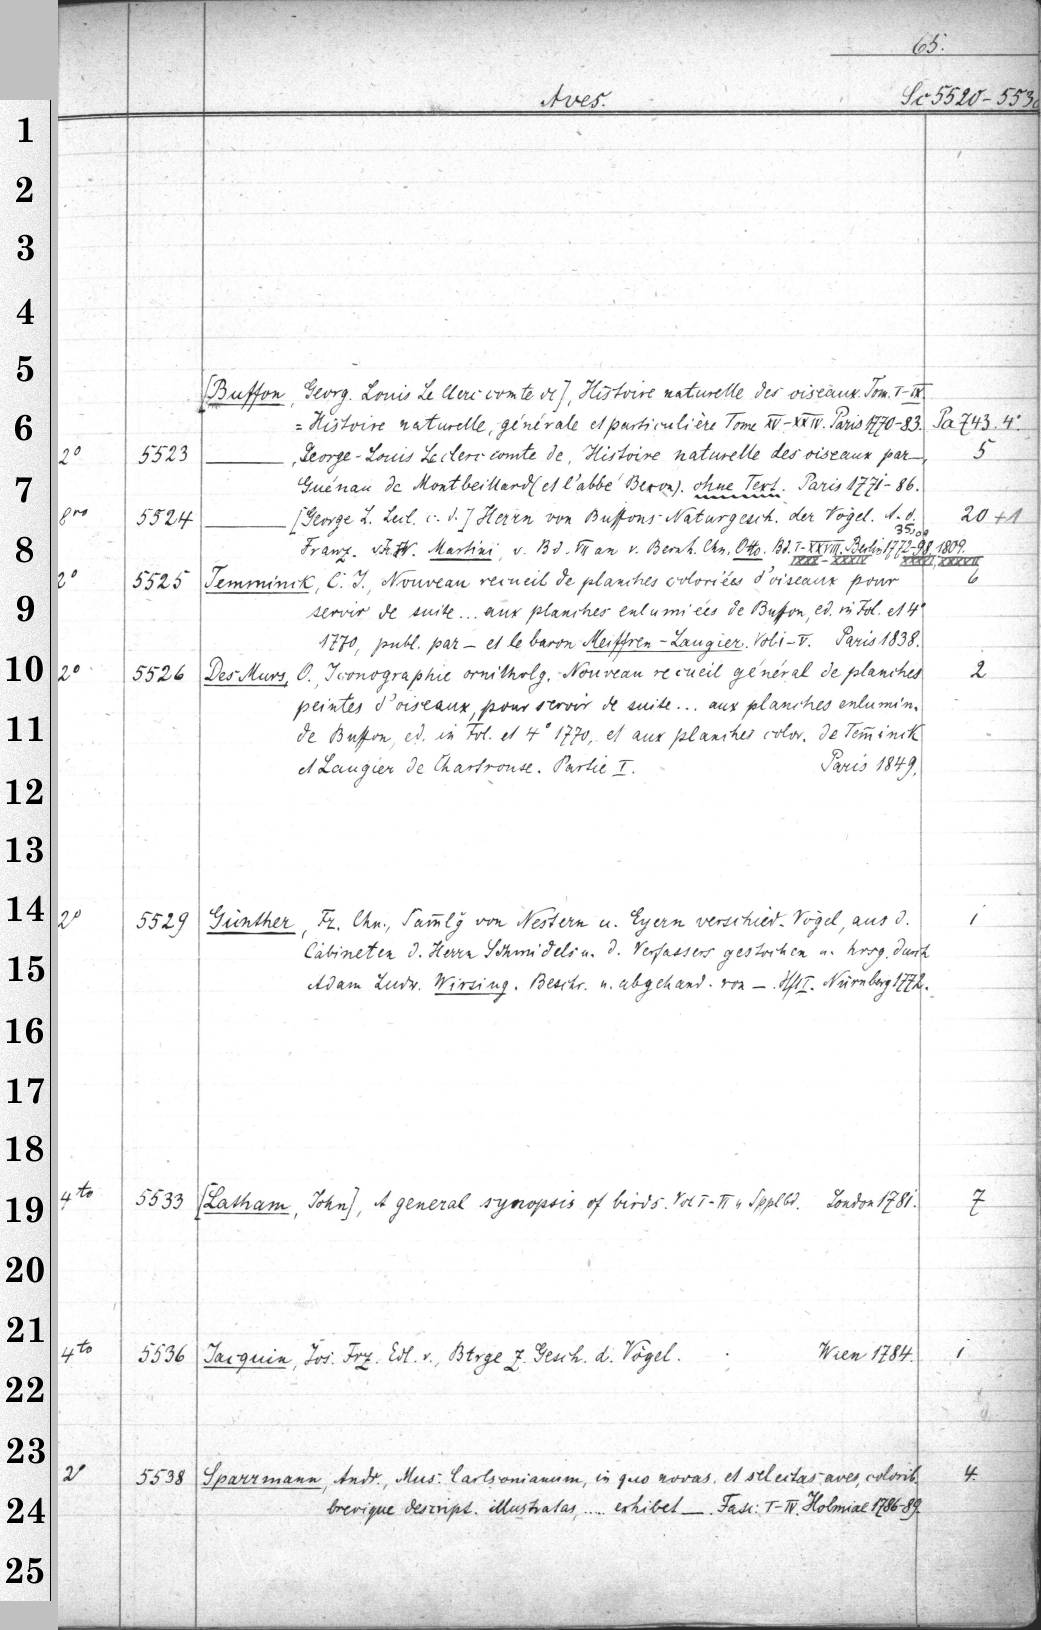 65.
Aves. Sc 5520-553
1
2
3
4
5
[Buffon, Georg. Louis Le Clerc comte de], Histoire naturelle des oiseaux. Tom. I-IX.
6
= Histoire naturelle, générale et particulière Tome XV-XXIV. Paris 1770-83. Pa 743. 4°
2° 5523 ———, George-Louis Leclerc comte de, Histoire naturelle des oiseaux par —, 5
7
Guénau de Montbeillard (et l'abbé Bexon). ohne Text. Paris 1771-86.
8vo 5524 ——— [George L. Lecl. c. d.] Herrn von Buffons Naturgesch. der Vögel. A. d. 20 + 1
8
Franz. v. Martini, v. Bd. VII an v. Bernh. Chn. Otto. Bd. I-XXVIII. Berlin 1772-98, 1809.
2° 5525 Temminck, C. J., Nouveau recueil de planches coloriées d'oiseaux pour 6
9
servir de suite ... aux planches enlumiées de Buffon, ed. in Fol. et 4°
1770, publ. par — et le baron Meiffren-Laugier. Vol I-V. Paris 1838.
10
2° 5526 Des Murs, O., Iconographie ornitholg. Nouveau recueil général de planches 2
peintes d'oiseaux, pour servir de suite ... aux planches enlumin.
11
de Buffon, ed. in Fol. et 4° 1770, et aux planches color. de Tem̅inik
et Laugier de Chartrouse. Partie I. Paris 1849.
12
13
14
2° 5529 Günther, Fr. Chn., Sam̅lg von Nestern u. Eyern verschied. Vögel, aus d. 1
Cabineten d. Herrn Schmidels u. d. Verfassers gestochen u. hrsg. durch
15
Adam Ludw. Wirsing. Beschr. u. abgehand. von —. Hft I. Nürnberg 1772.
16
17
18
19
4to 5533 [Latham, John], A general synopsis of birds. Vol I-III u Spplbd. London 1781. 7
20
21
4to 5536 Jacquin, Jos. Frz. Edl. v., Btrge z. Gesch. d. Vögel. Wien 1784. 1
22
23
2° 5538 Sparrmann, Andr., Mus. Carlsonianum, in quo novas et selectas aves, colorib. 4
24
brevique descript. illustratas, .... exhibet —. Fasc. I-IV. Holmiae 1786-89.
25